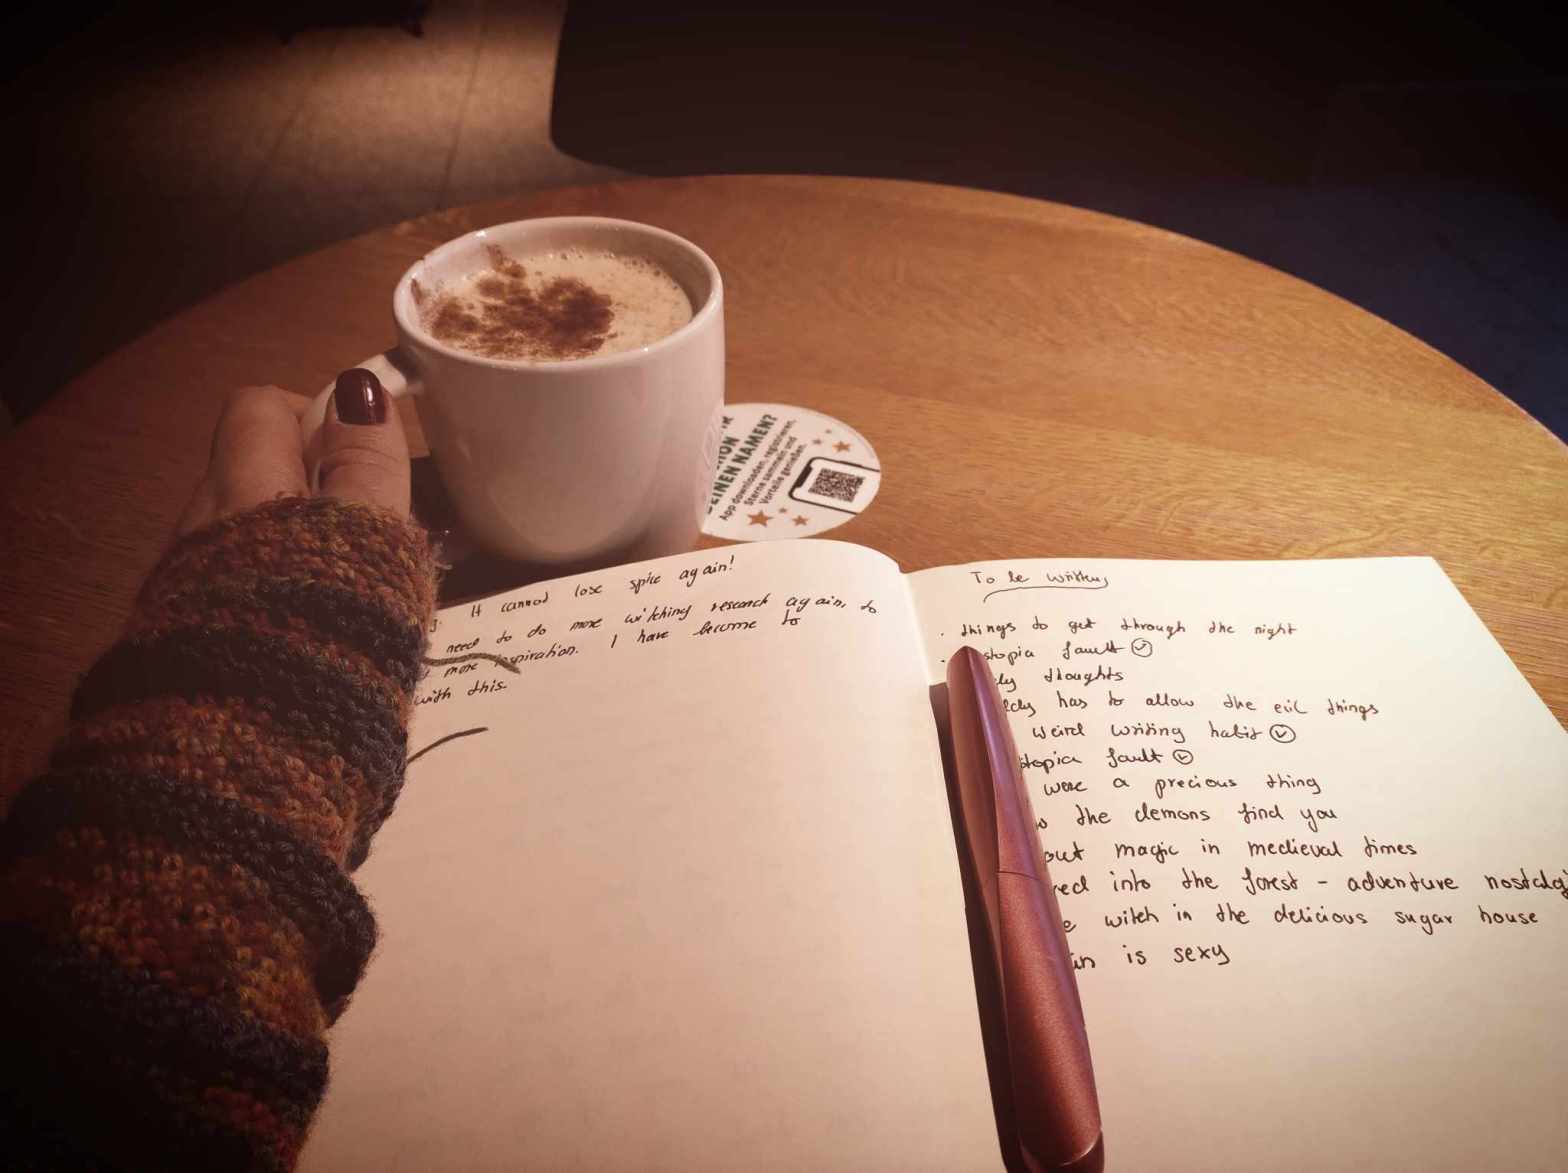 EINEN NAMEN?
App downloaden, registrieren,
Sterne sammeln und
Vorteile genießen.
It cannot lose spice again!
need to do more witching research again, to
more inspiration. I have become to
with this.
To be written
. things to get through the night
. stopia fault
ly thoughts
has to allow the evil things
weird writing habit
topia fault
were a precious thing
the demons find you
out magic in medieval times
red into the forest - adventure nostalg
e witch in the delicious sugar house
in is sexy